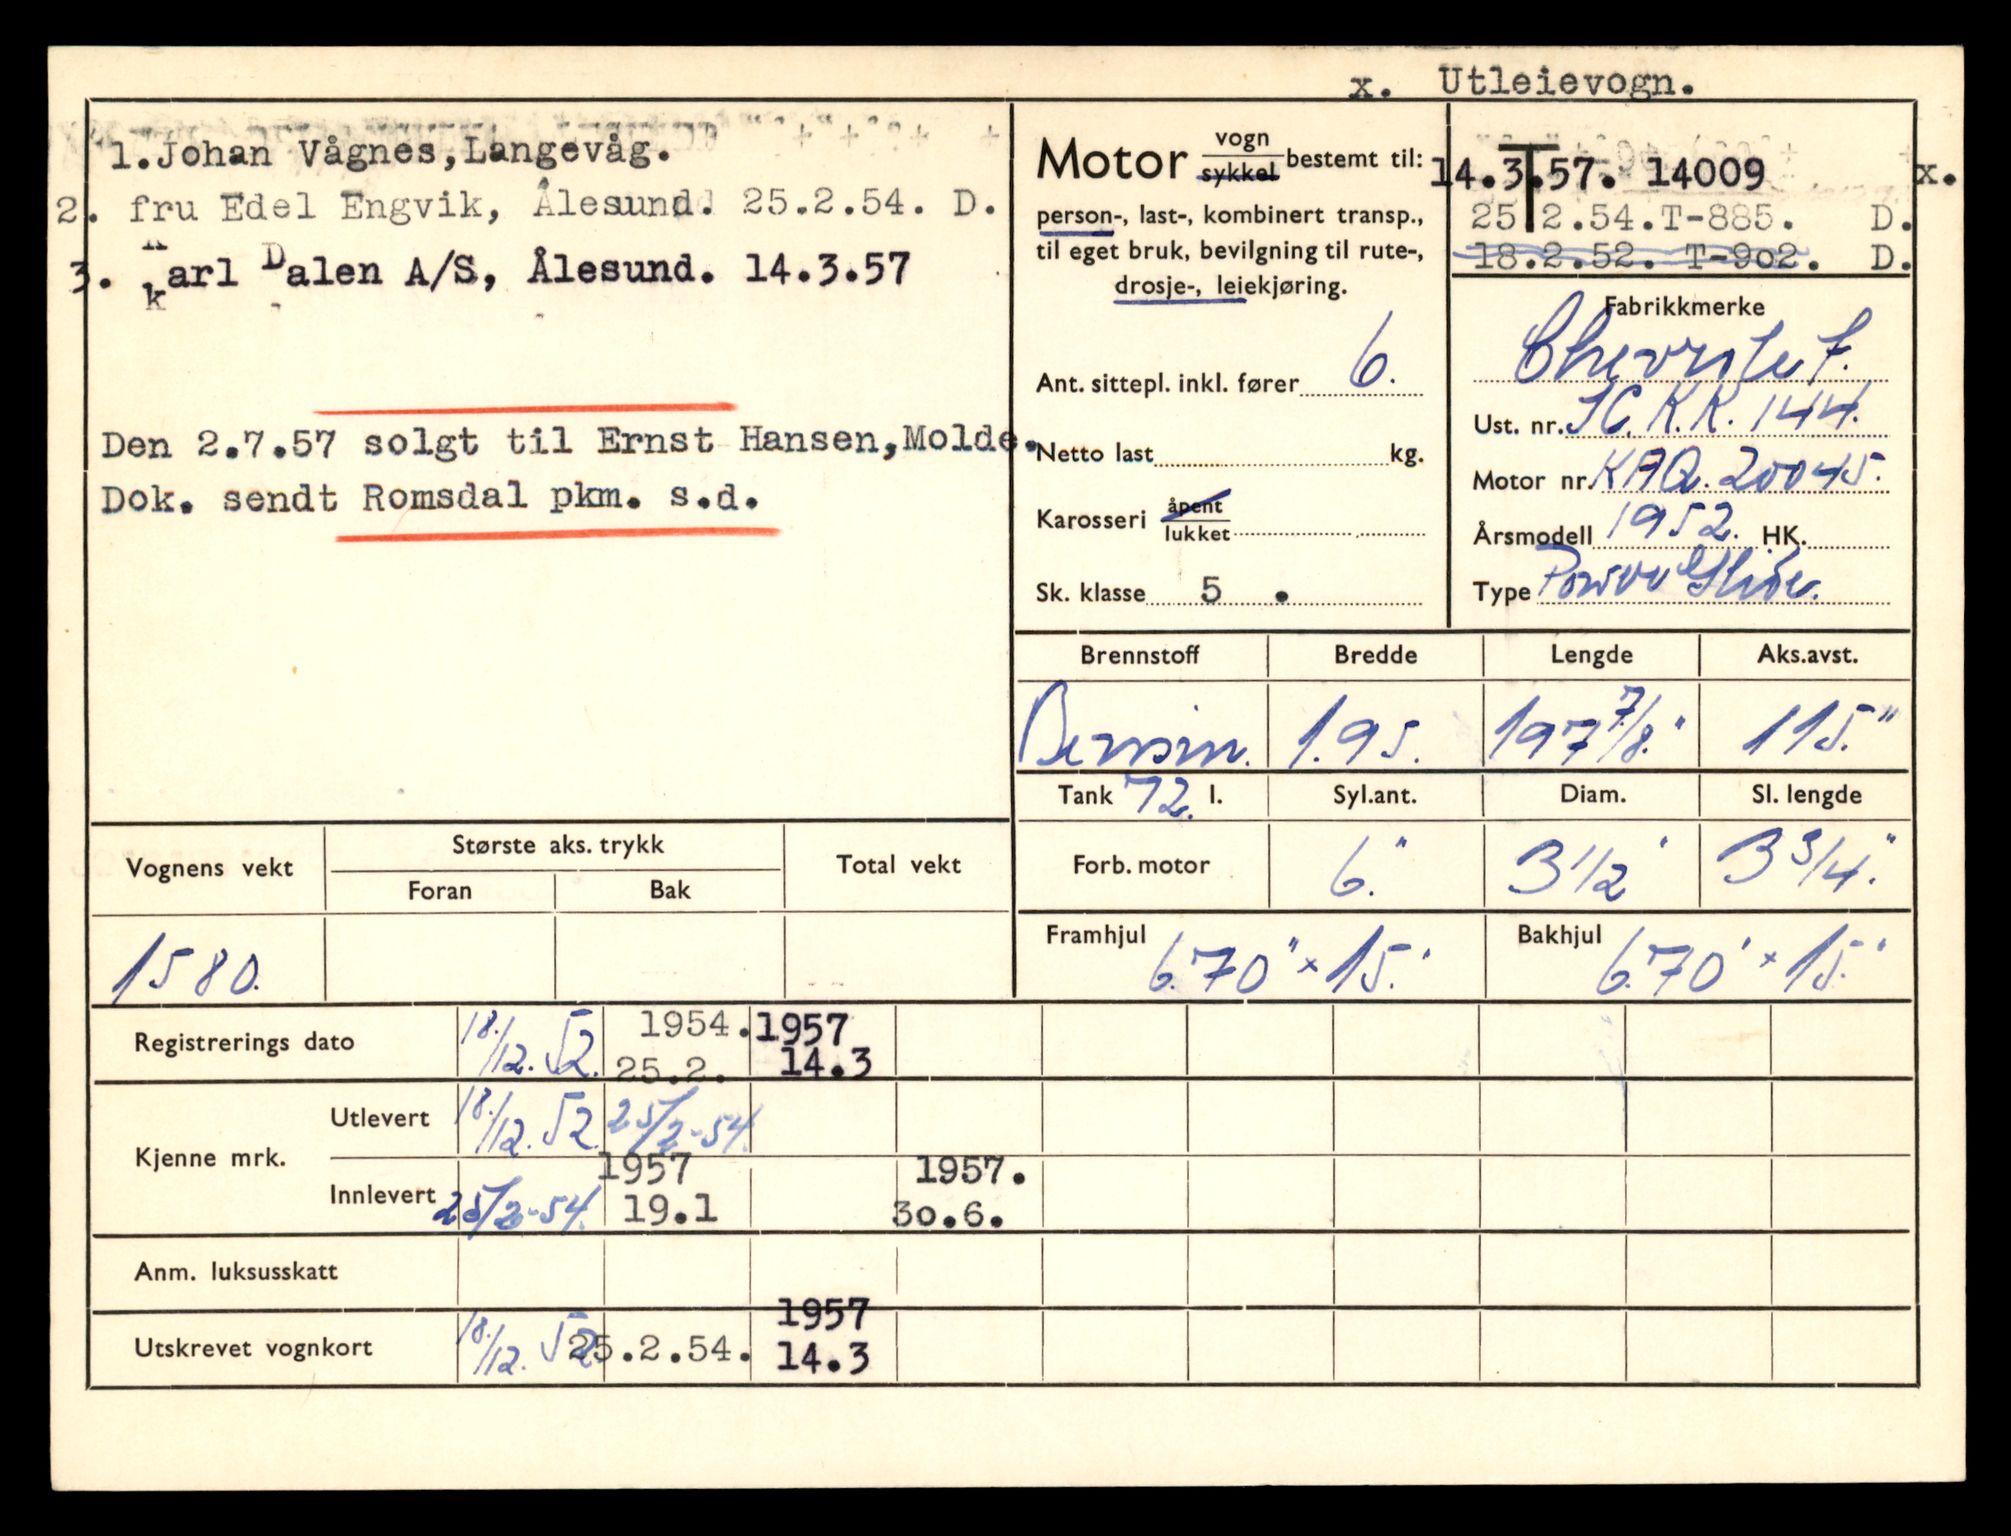 x. Utleievogn.
1.Johan Vågnes,Langevåg.
2. fru Edel Engvik, Ålesund. 25.2.54. D.
3. Karl Dalen A/S, Ålesund. 14.3.57
Den 2.7.57 solgt til Ernst Hansen,Molde.
Dok. sendt Romsdal pkm. s.d.
Motor vogn / sykkel bestemt til:
person-, last-, kombinert transp.,
til eget bruk, bevilgning til rute-,
drosje-, leiekjøring.
Ant. sittepl. inkl. fører 6.
Netto last kg.
Karosseri åpent / lukket
Sk. klasse 5 .
T
14.3.57. 14009 x.
25.2.54.T-885. D.
18.2.52. T-9o2. D.
Fabrikkmerke
Chevrolet.
Ust. nr. JC. K.K. 144.
Motor nr. KAQ. 20045.
Årsmodell 1952. HK.
Type Power Glide.
Brennstoff Bredde Lengde Aks.avst.
Bensin. 1.95. 197 7/8." 115."
Tank 72. l. Syl.ant. Diam. Sl. lengde
Forb. motor 6." 3 1/2' 3 3/4."
Framhjul 6.70" x 15.' Bakhjul 6.70' x 15.'
Vognens vekt Største aks. trykk Total vekt
Foran Bak
1580.
Registrerings dato 18./12. 52. 1954. 25.2. 1957 14.3
Kjenne mrk.
Utlevert 18./12. 52. 25/2-54.
Innlevert 25/2-54. 1957 19.1 1957. 3o.6.
Anm. luksusskatt
Utskrevet vognkort 18./12. 52 25.2.54. 1957 14.3